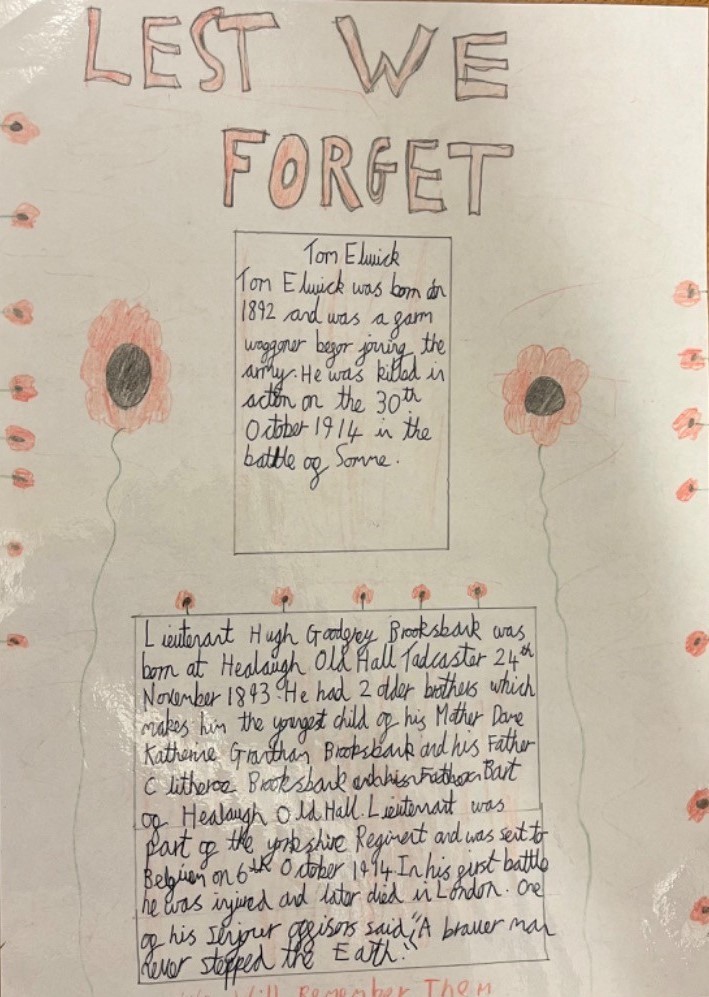 LEST WE
FORGET
Tom Elwick
Tom Elwick was born in
1892 and was a garm
waggoner begor joining the
army. He was killed in
acton on the 30th
October 1914 in the
battle og Somme.
Lieutenant Hugh Godgrey Brooksbank was
born at Healaugh Old Hall Tadcaster 24th
November 1893. He had 2 older brothers which
makes him the youngest child og his Mother Dame
Katherine Granthan Brooksbank and his Father
Clitheroe Brooksbank and his Father Bart
og Healaugh Old Hall. Lieutenant was
part og the yorkshire Regiment and was sent to
Belguim on 6th October 1914. In his girst battle
he was injured and later died in London. One
og his oggisors said, "A brauer man
never stepped the Earth."
We Will Remember Them